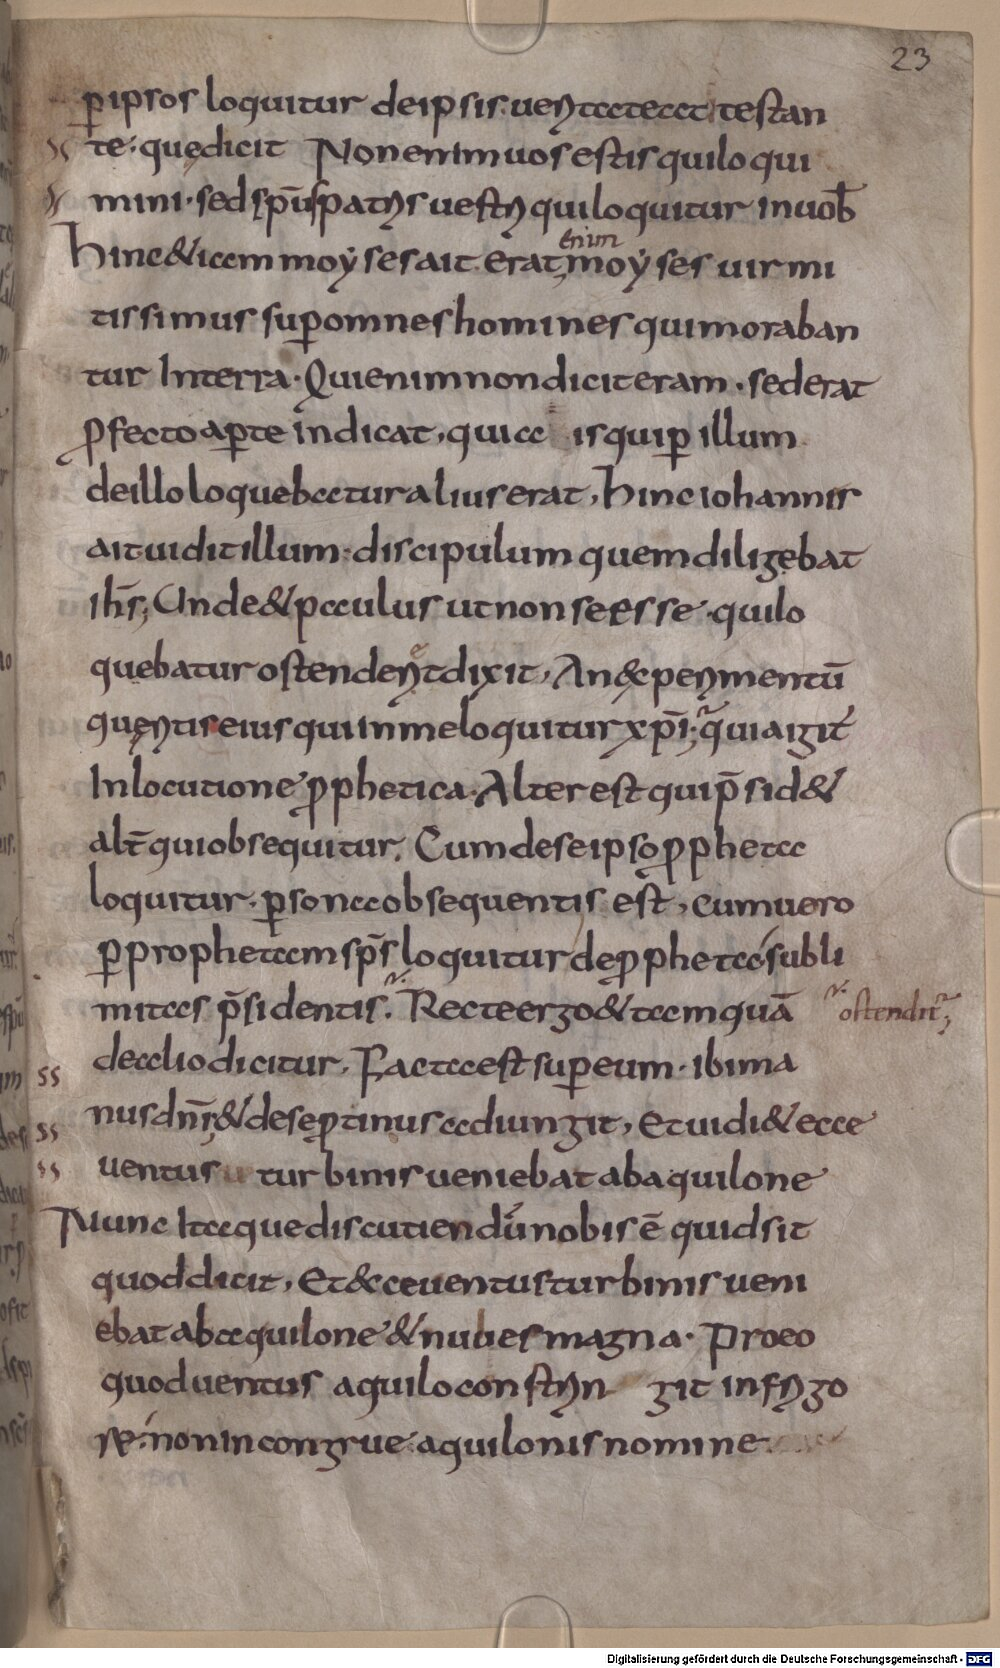 23
ꝑipsos loquitur deipsis. ueritateat testan
te. quędicit Nonenimuosestisquiloqui
mini. sed sp̄uspatris uestriquiloquitur inuob̄
hinc&iam moẏses ait. erat enim moẏses uirmi
tissimus suꝑomneshominesquimoraban
tur Interra. Quienimnondiciteram. sederat
ꝓfectoaꝑteindicat, quia isquiꝑillum
deilloloquebaturaliuserat, hinciohannis
aituiditillum. discipulumquemdiligebat
ih̄s; Unde&paulusutnonseesse. quilo
quebaturostenderetdixit, An&perimentū
quęritiseiusquiinmeloquiturxp̄i; quiaigit̄
Inlocutioneꝓphetica. Alterestquip̄sid&
alt̄quiobsequitur. Cumdeseipsoꝓpheta
loquitur. ꝑsonaobsequentis est, cumuero
ꝑprophetamsp̄s loquiturdeꝓpheta; subli
mitas p̄sidentis. Recteergo&tamquā
ostendit̄;
decaliodicitur. Factaestsuꝑeum. ibima
ss
nusdn̄i;&deseꝓtinusadiungit, Etuidi&ecce
ss
uentus turbinisueniebatabaquilone
ss
Nunc Itaquediscutiendūnobisē quidsit
quoddicit, Et&ceuentusturbinisueni
ebatabaquilone&nubesmagna. Proeo
quoduentus aquiloconstrin git infrigo
re. nonincongrue. aquilonisnomine
Digitalisierung gefördert durch die Deutsche Forschungsgemeinschaft - DFG